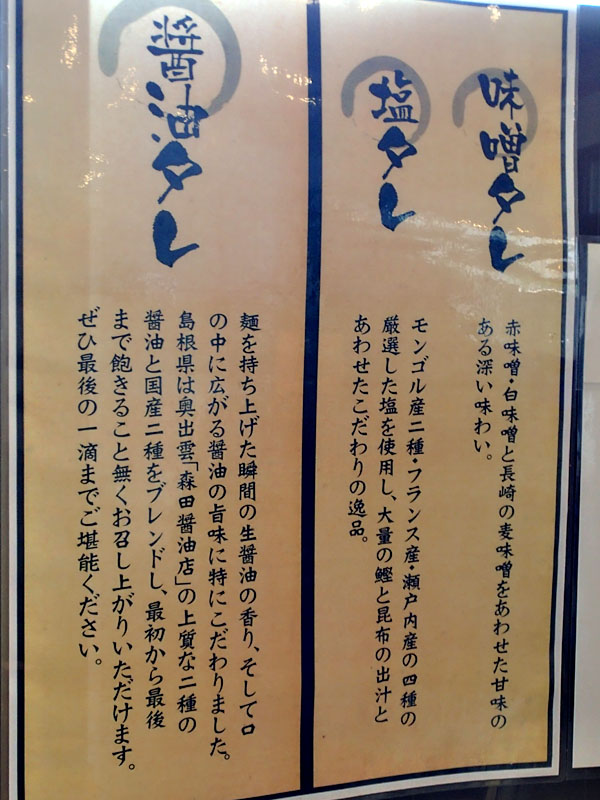 味噌タレ
赤味噌・白味噌と長崎の麦味噌をあわせた甘味の
ある深い味わい。
塩タレ
モンゴル産二種・フランス産・瀬戸内産の四種の
厳選した塩を使用し、大量の鰹と昆布の出汁と
あわせたこだわりの逸品。
醤油タレ
麺を持ち上げた瞬間の生醤油の香り、そして口
の中に広がる醤油の旨味に特にこだわりました。
島根県は奥出雲「森田醤油店」の上質な二種の
醤油と国産二種をブレンドし、最初から最後
まで飽きること無くお召し上がりいただけます。
ぜひ最後の一滴までご堪能ください。